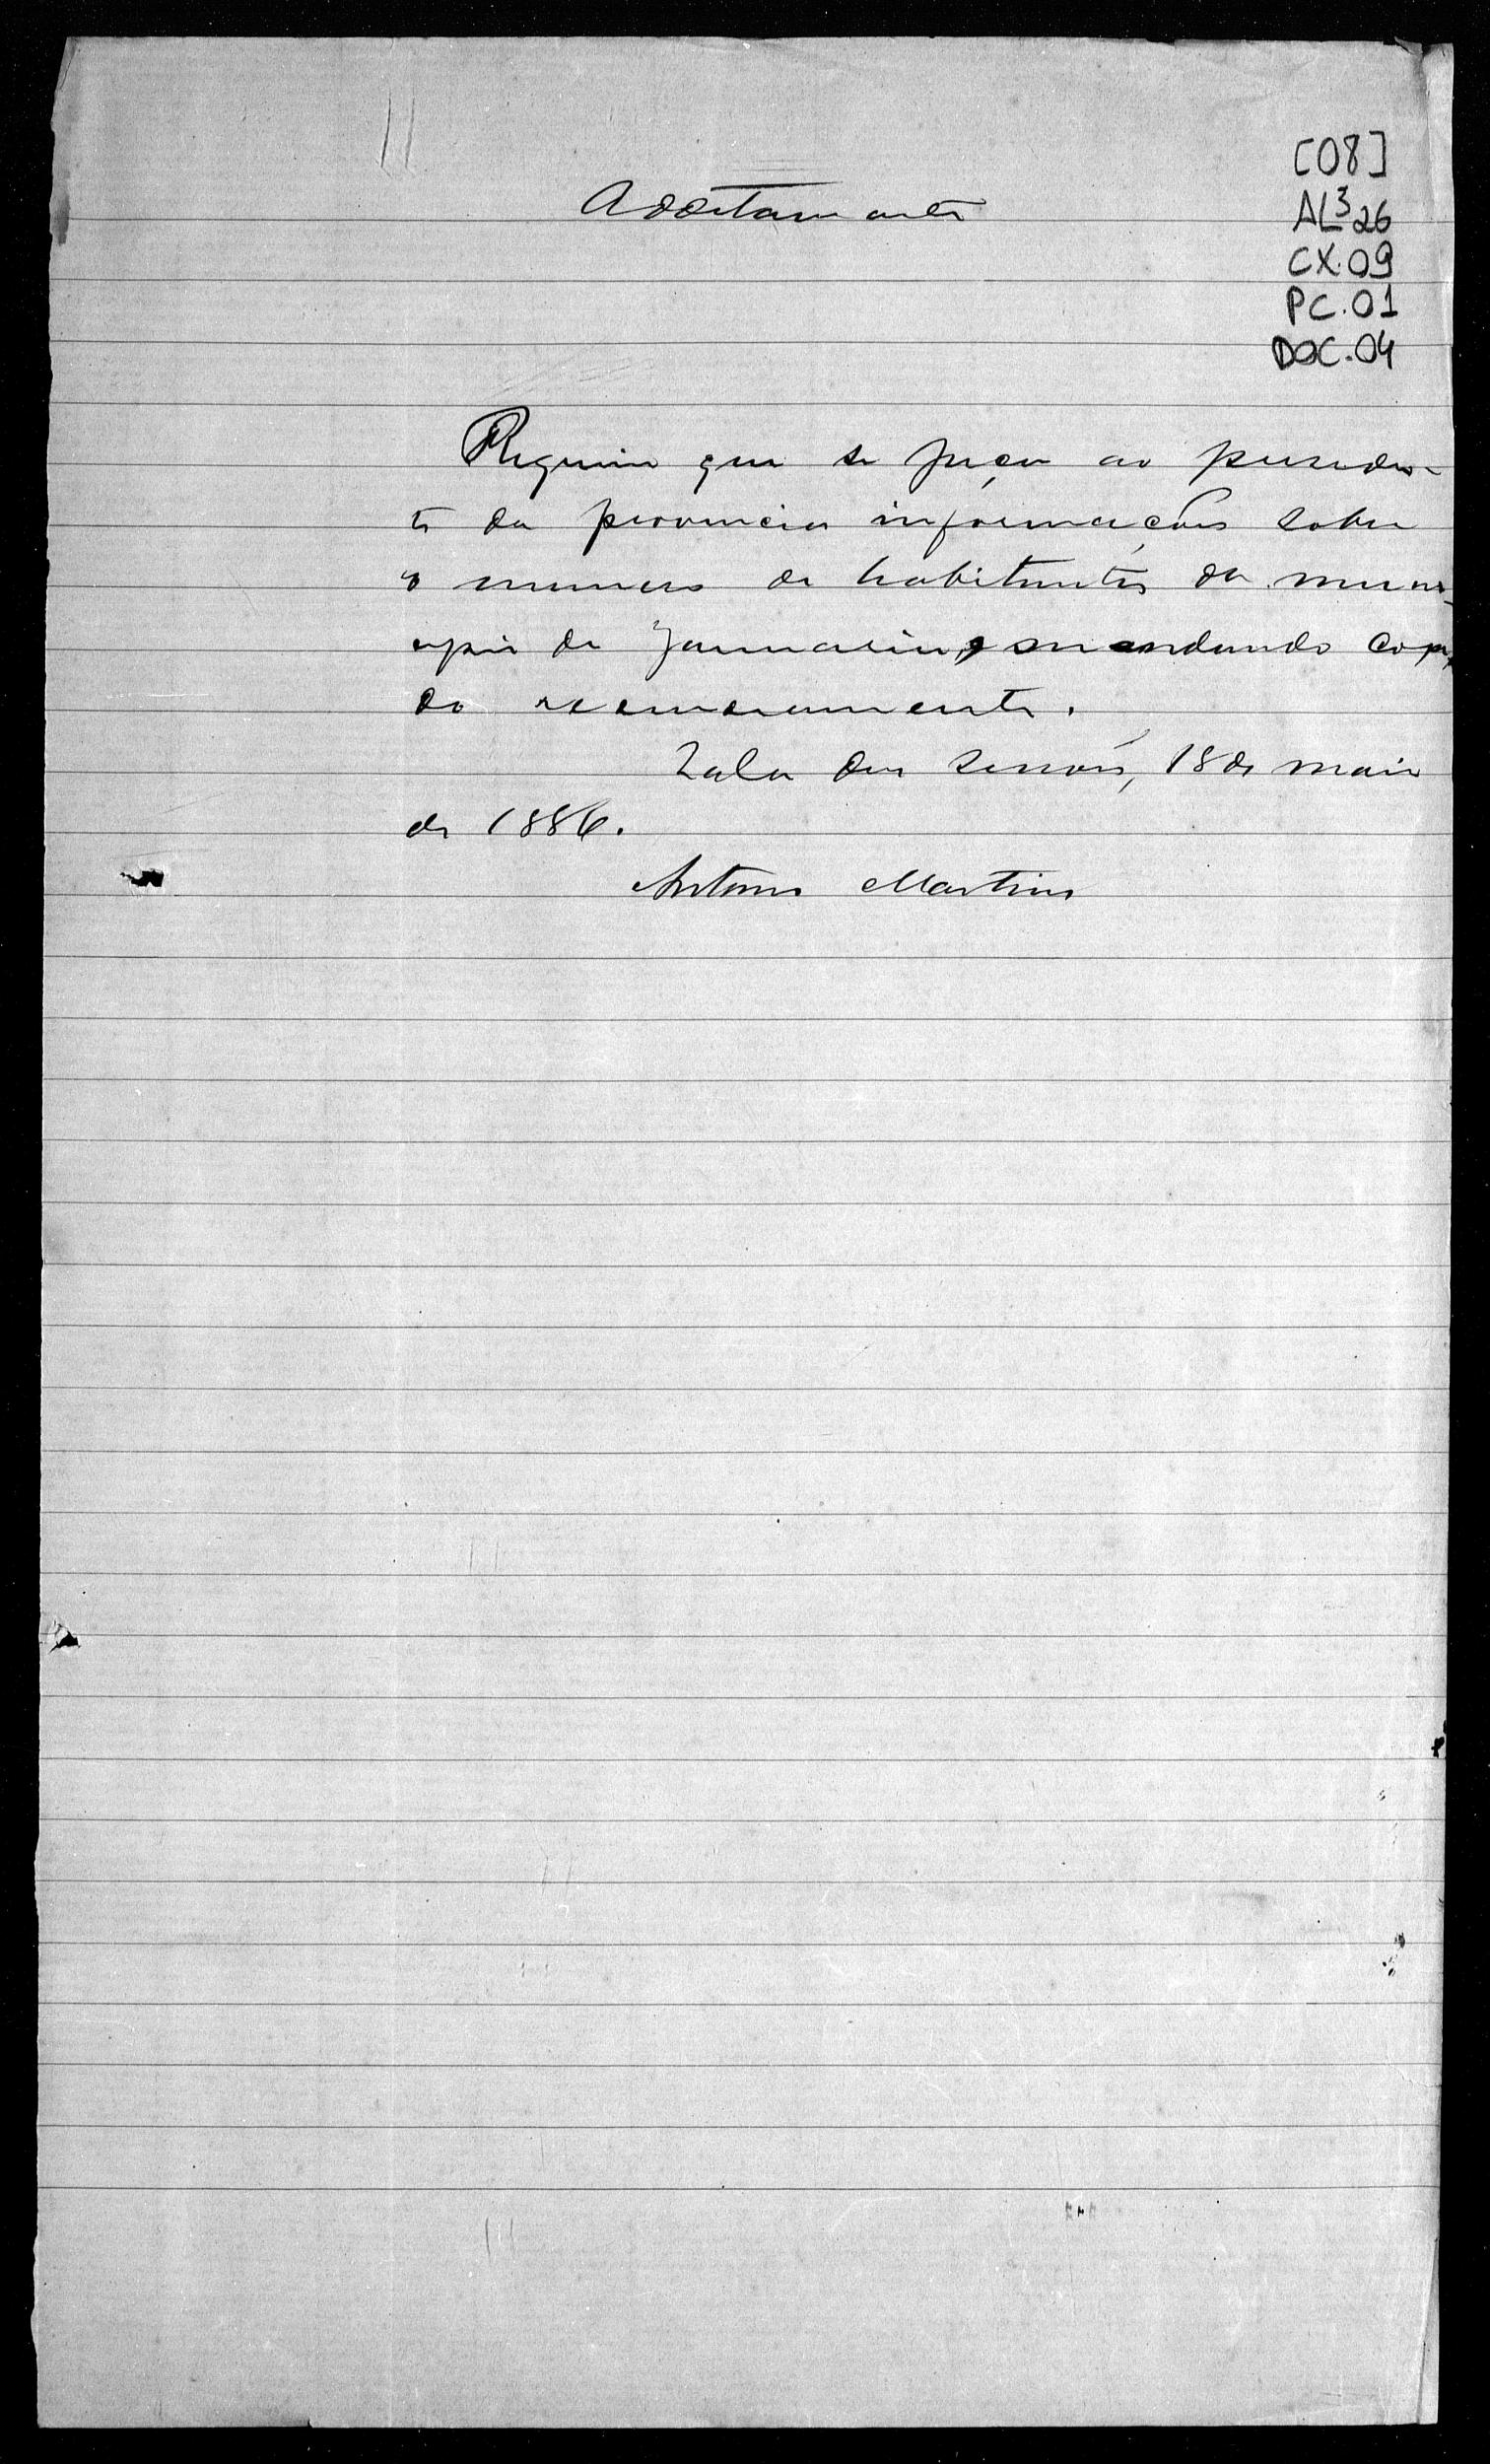 Additamento
[08]
AL³26
CX.09
PC.01
DOC.04
Requeiro que se peça ao presiden-
te da provincia informações sobre
o numero de habitantes do muni-
cipio de Januaria, mandando copia
do recenseamento.
Sala das sessões, 18 de maio
de 1886.
Antonio Martins